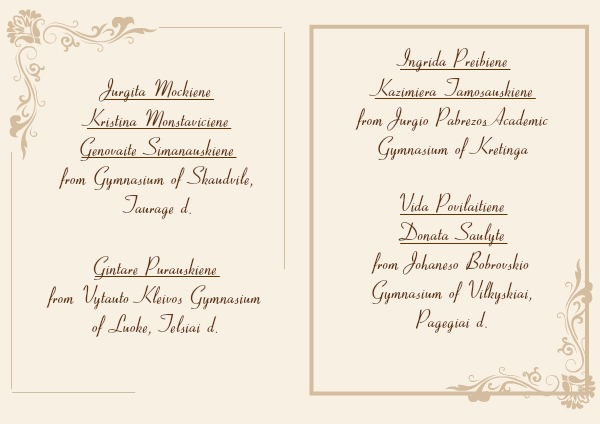 Jurgita Mockiene
Kristina Monstaviciene
Genovaite Simanauskiene
from Gymnasium of Skaudvile,
Taurage d.
Gintare Purauskiene
from Vytauto Kleivos Gymnasium
of Luoke, Telsiai d.
Ingrida Preibiene
Kazimiera Tamosauskiene
from Jurgio Pabrezos Academic
Gymnasium of Kretinga
Vida Povilaitiene
Donata Saulyte
from Johaneso Bobrovskio
Gymnasium of Vilkyskiai,
Pagegiai d.